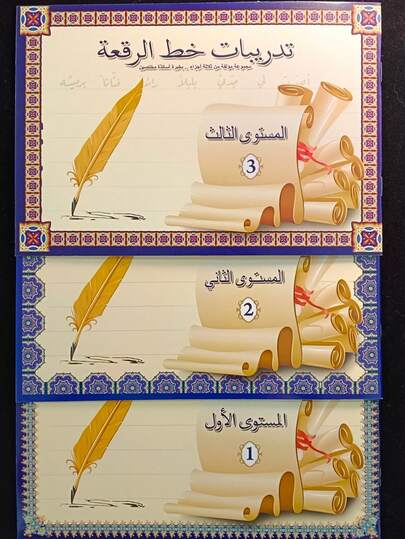 تدريبات خط الرقعة
مجموعة مؤلفة من ثلاثة أجزاء .. بخبرة أساتذة مختصين
المستوى الثالث
3
المستوى الثاني
2
المستوى الأول
1